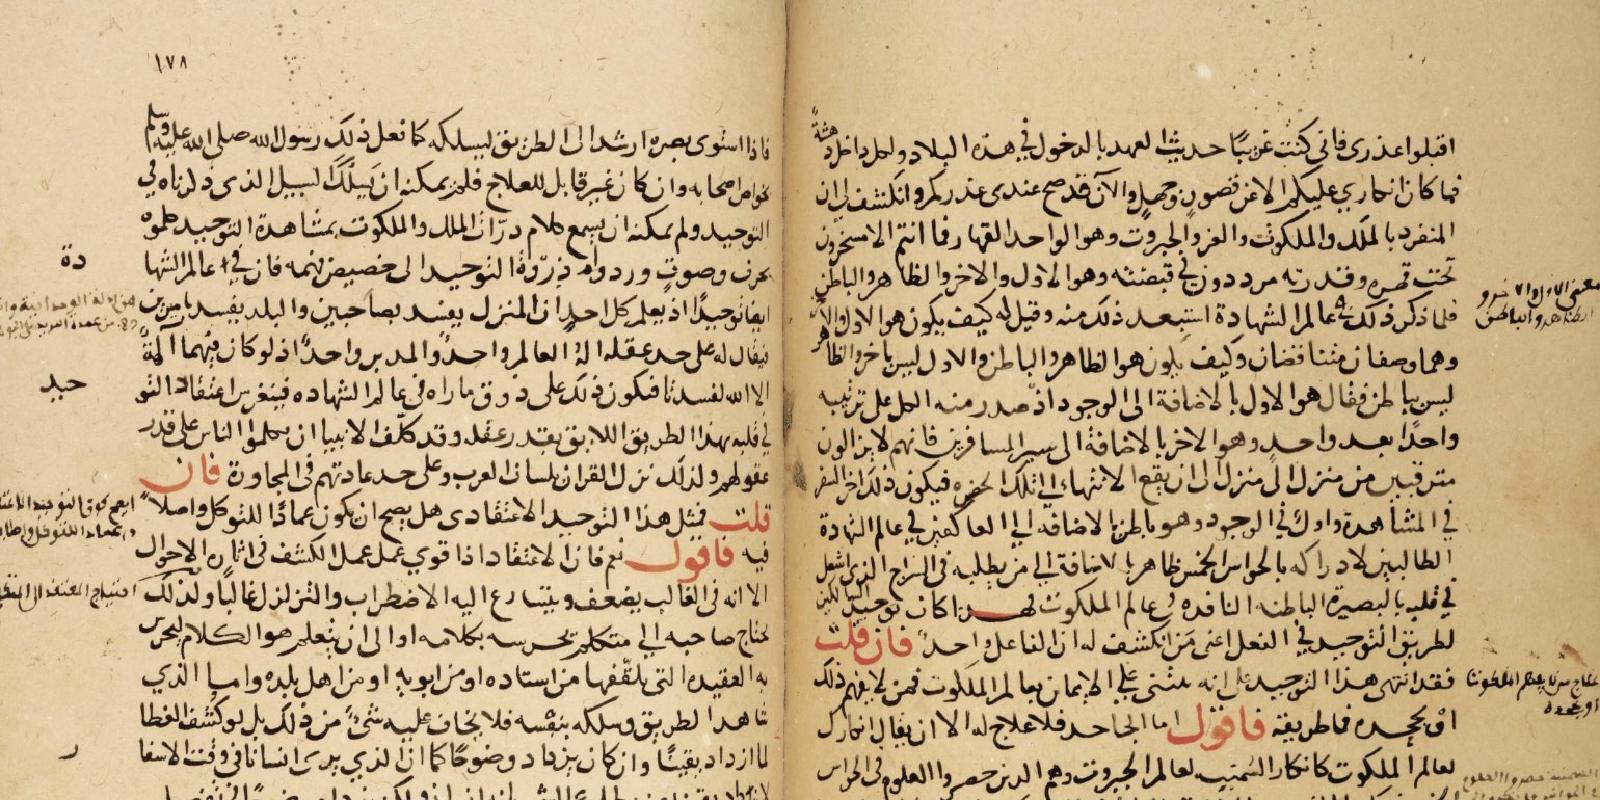 اقبلوا عذري فاني كنت غريبًا حديث العهد بالدخول في هذه البلاد ولكل داخل دهشة
فما كان انكاري عليكم الا عن قصور وجهل والآن قد صح عندي عذركم وانكشف لي ان
المنفرد بالملك والملكوت والعز والجبروت وهو الواحد القهار فما انتم الا مسخرون
تحت قهره وقدرته مرددون في قبضته وهو الاول والاخر والظاهر والباطن
فلما ذكر ذلك في عالم الشهادة استبعد ذلك منه وقيل له كيف يكون هو الاول والاخر
وهما وصفان متناقضان وكيف يكون هو الظاهر والباطن والاول ليس باخر والظاهر
ليس بباطن فقال هو الاول بالاضافة الى الوجود اذ صدر منه الكل على ترتيبه
واحدًا بعد واحد وهو الاخر بالاضافة الى سير المسافرين فانهم لا يزالون
مترقيين من منزل الى منزل الى ان يقع الانتهاء الي تلك الحضره فيكون ذلك اخر السفر
في المشاهدة واول في الوجود وهو باطن بالاضافه الي العاكفين في عالم الشهادة
الطالبين لادراكه بالحواس الخمس ظاهر بالاضافة الي من يطلبه في السراج الذي اشتعل
في قلبه بالبصيرة الباطنه النافده في عالم الملكوت فهكذا كان توحيد السالكين
لطريق التوحيد في الفعل اعنى من انكشف له ان الفاعل واحد فان قلت
فقد انتهى هذا التوحيد على انه يبتني علي الايمان بعالم الملكوت فمن لا يفهم ذلك
او يجحده فما طريقه فاقول اما الجاحد فلا علاج له الا ان يقال انكارك
لعالم الملكوت كانكار السمنيه لعالم الجبروت وهم الذين حصروا العلوم في الحواس
معنى الاول والاخر و
الظاهر والباطن
علاج من لا يفهم الملكوت
او يجحده
١٧٨
فاذا استوى بصره ارشد الى الطريق ليسلكه كما فعل ذلك رسول الله صلى الله عليه وسلم
بخواص اصحابه وان كان غير قابل للعلاج فلم يمكنه ان يسلك السبيل الذي ذكرناه في
التوحيد ولم يمكنه ان يسمع كلام ذرّات الملك والملكوت بمشاهدة التوحيد كلموه
بحرف وصوت وردوا ذروة التوحيد الى حضيض فهمه فان في عالم الشها
دة
ايضا توحيدًا اذ يعلم كل احد ان المنزل يفسد بصاحبين والبلد يفسد باميرين
فيقال له على حد عقله اله العالم واحد والمدبر واحد اذ لو كان فيهما آلهة
الا الله لفسدتا فيكون ذلك على ذوق ما راه في عالم الشهاده فينغرس اعتقاد التو
حيد
في قلبه بهذا الطريق اللايق بقدر عقله وقد كلّف الانبيا ان يكلموا الناس على قدر
عقولهم ولذلك نزل القران بلسان العرب وعلى حد عادتهم في المحاورة فان
قلت فمثل هذا التوحيد الاعتقادي هل يصح ان يكون عمادًا للتوكل واصلاً
فيه فاقول نعم فان الاعتقاد اذا قوي عمل عمل الكشف في اثارة الاحوال
الا انه في الغالب يضعف ويتسارع اليه الاضطراب والتزلزل غالبًا ولذلك
يحتاج صاحبه الي متكلم يحرسه بكلامه او الى ان يتعلم هو الكلام ليحرس
به العقيده التي تلقّفها من استاده او من ابويه او من اهل بلده واما الذي
شاهد الطريق وسلكه بنفسه فلا يخاف عليه شيء من ذلك بل لو كشف الغطا
لما ازداد يقينًا وان كان يزداد وضوحًا كما ان الذي يرى انسانا في وقت الاسفا
ر